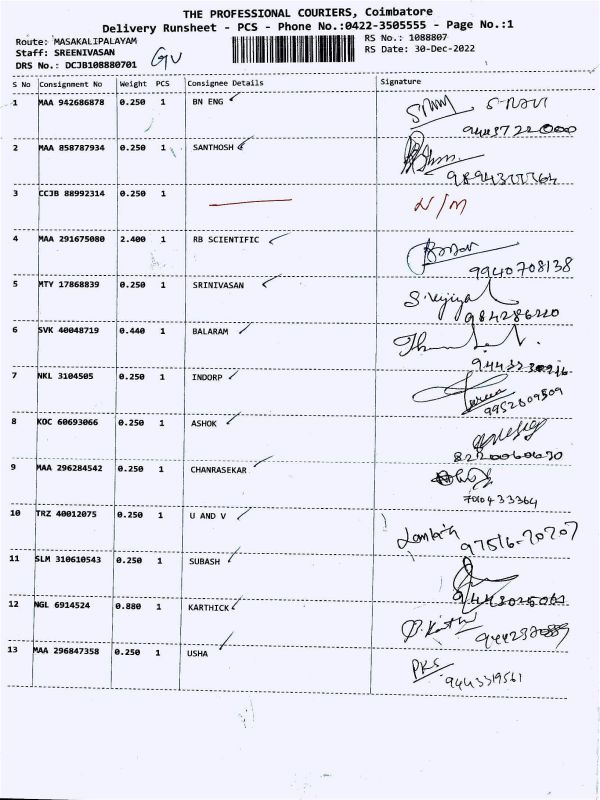 THE PROFESSIONAL COURIERS, Coimbatore
Delivery Runsheet - PCS - Phone No.:0422-3505555 - Page No.:1
Route: MASAKALIPALAYAM
RS No.: 1088807
Staff: SREENIVASAN
RS Date: 30-Dec-2022
DRS No.: DCJB108880701
GV
S No Consignment No Weight PCS Consignee Details Signature
1 MAA 942686878 0.250 1 BN ENG S-RAVI
2 MAA 858787934 0.250 1 SANTHOSH
3 CCJB 88992314 0.250 1 N/M
4 MAA 291675080 2.400 1 RB SCIENTIFIC
9940708138
5 MTY 17868839 0.250 1 SRINIVASAN
984286210
6 SVK 40048719 0.440 1 BALARAM
7 NKL 3104505 0.250 1 INDORP
9952809509
8 KOC 60693066 0.250 1 ASHOK
9 MAA 296284542 0.250 1 CHANRASEKAR
10 TRZ 40012075 0.250 1 U AND V
97516-70707
11 SLM 310610543 0.250 1 SUBASH
12 NGL 6914524 0.880 1 KARTHICK
13 MAA 296847358 0.250 1 USHA PKS
9443319561